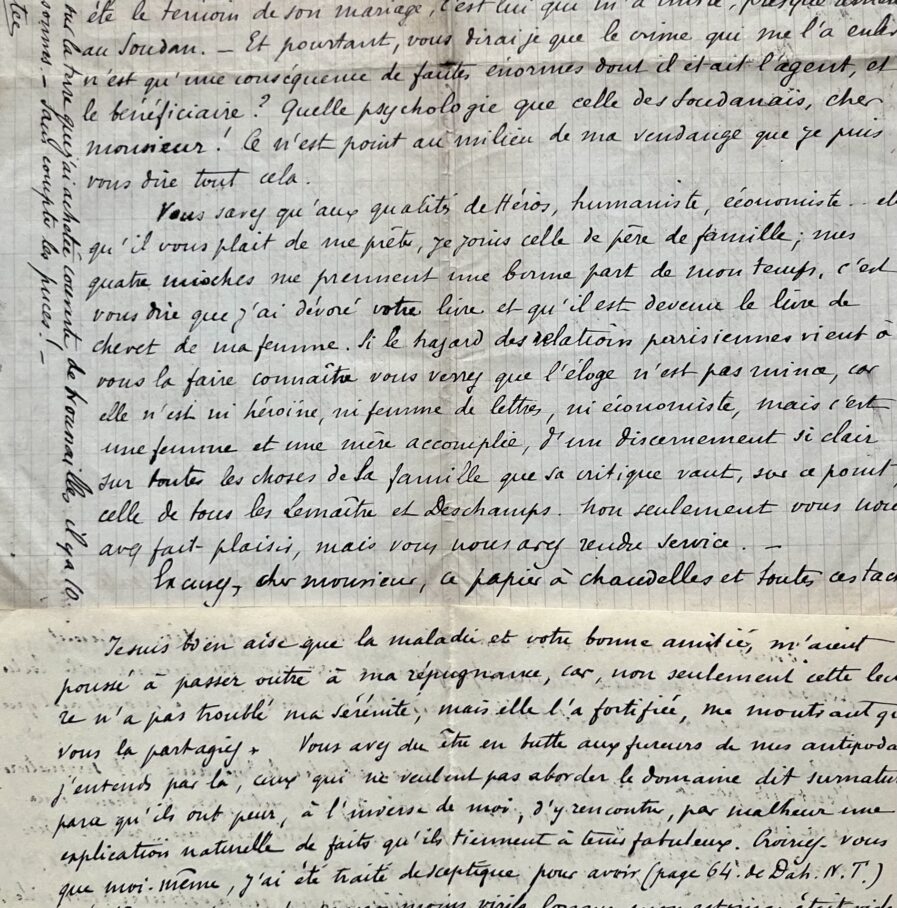 été le témoin de son mariage, c'est lui qui m'a initié, presque
au Soudan. — Et pourtant, vous dirai je que le crime qui me l'a enle
n'est qu'une conséquence de fautes énormes dont il était l'agent, et
le bénéficiaire ? Quelle psychologie que celle des Soudanais, cher
monsieur ! Ce n'est point au milieu de ma vendange que je puis
vous dire tout cela.
Vous savez qu'aux qualités de Héros, humaniste, économiste .. et
qu'il vous plait de me prêter, je joins celle de père de famille ; mes
quatre mioches me prennent une bonne part de mon temps, c'est
vous dire que j'ai dévoré votre livre et qu'il est devenu le livre de
chevet de ma femme. Si le hazard des relations parisiennes vient à
vous la faire connaître vous verrez que l'éloge n'est pas mince, car
elle n'est ni héroïne, ni femme de lettres, ni économiste, mais c'est
une femme et une mère accomplie, d'un discernement si clair
sur toutes les choses de la famille que sa critique vaut, sur ce point,
celle de tous les Lemaître et Deschamps. Non seulement vous nou
avez fait plaisir, mais vous nous avez rendu service. —
Excusez, cher monsieur, ce papier à chandelles et toutes ces tach
Je suis bien aise que la maladie et votre bonne amitié, m'aient
poussé à passer outre à ma répugnance, car, non seulement cette lec
re n'a pas troublé ma sérénité, mais elle l'a fortifiée, me montrant q
vous la partagiez. Vous avez du être en butte aux fureurs de mes antipoda
j'entends par là, ceux qui ne veulent pas aborder le domaine dit surnatur
parce qu'ils ont peur, à l'inverse de moi, d'y rencontrer, par malheur une
explication naturelle de faits qu'ils tiennent à tenir fabuleux. Croiriez-vous
que moi-même, j'ai été traité de sceptique pour avoir (page 64. de Dah. N.T.)
moins
sur la terre que j'ai achetée couverte de broussailles, il y a 10.
— Sans compter les puces ! —